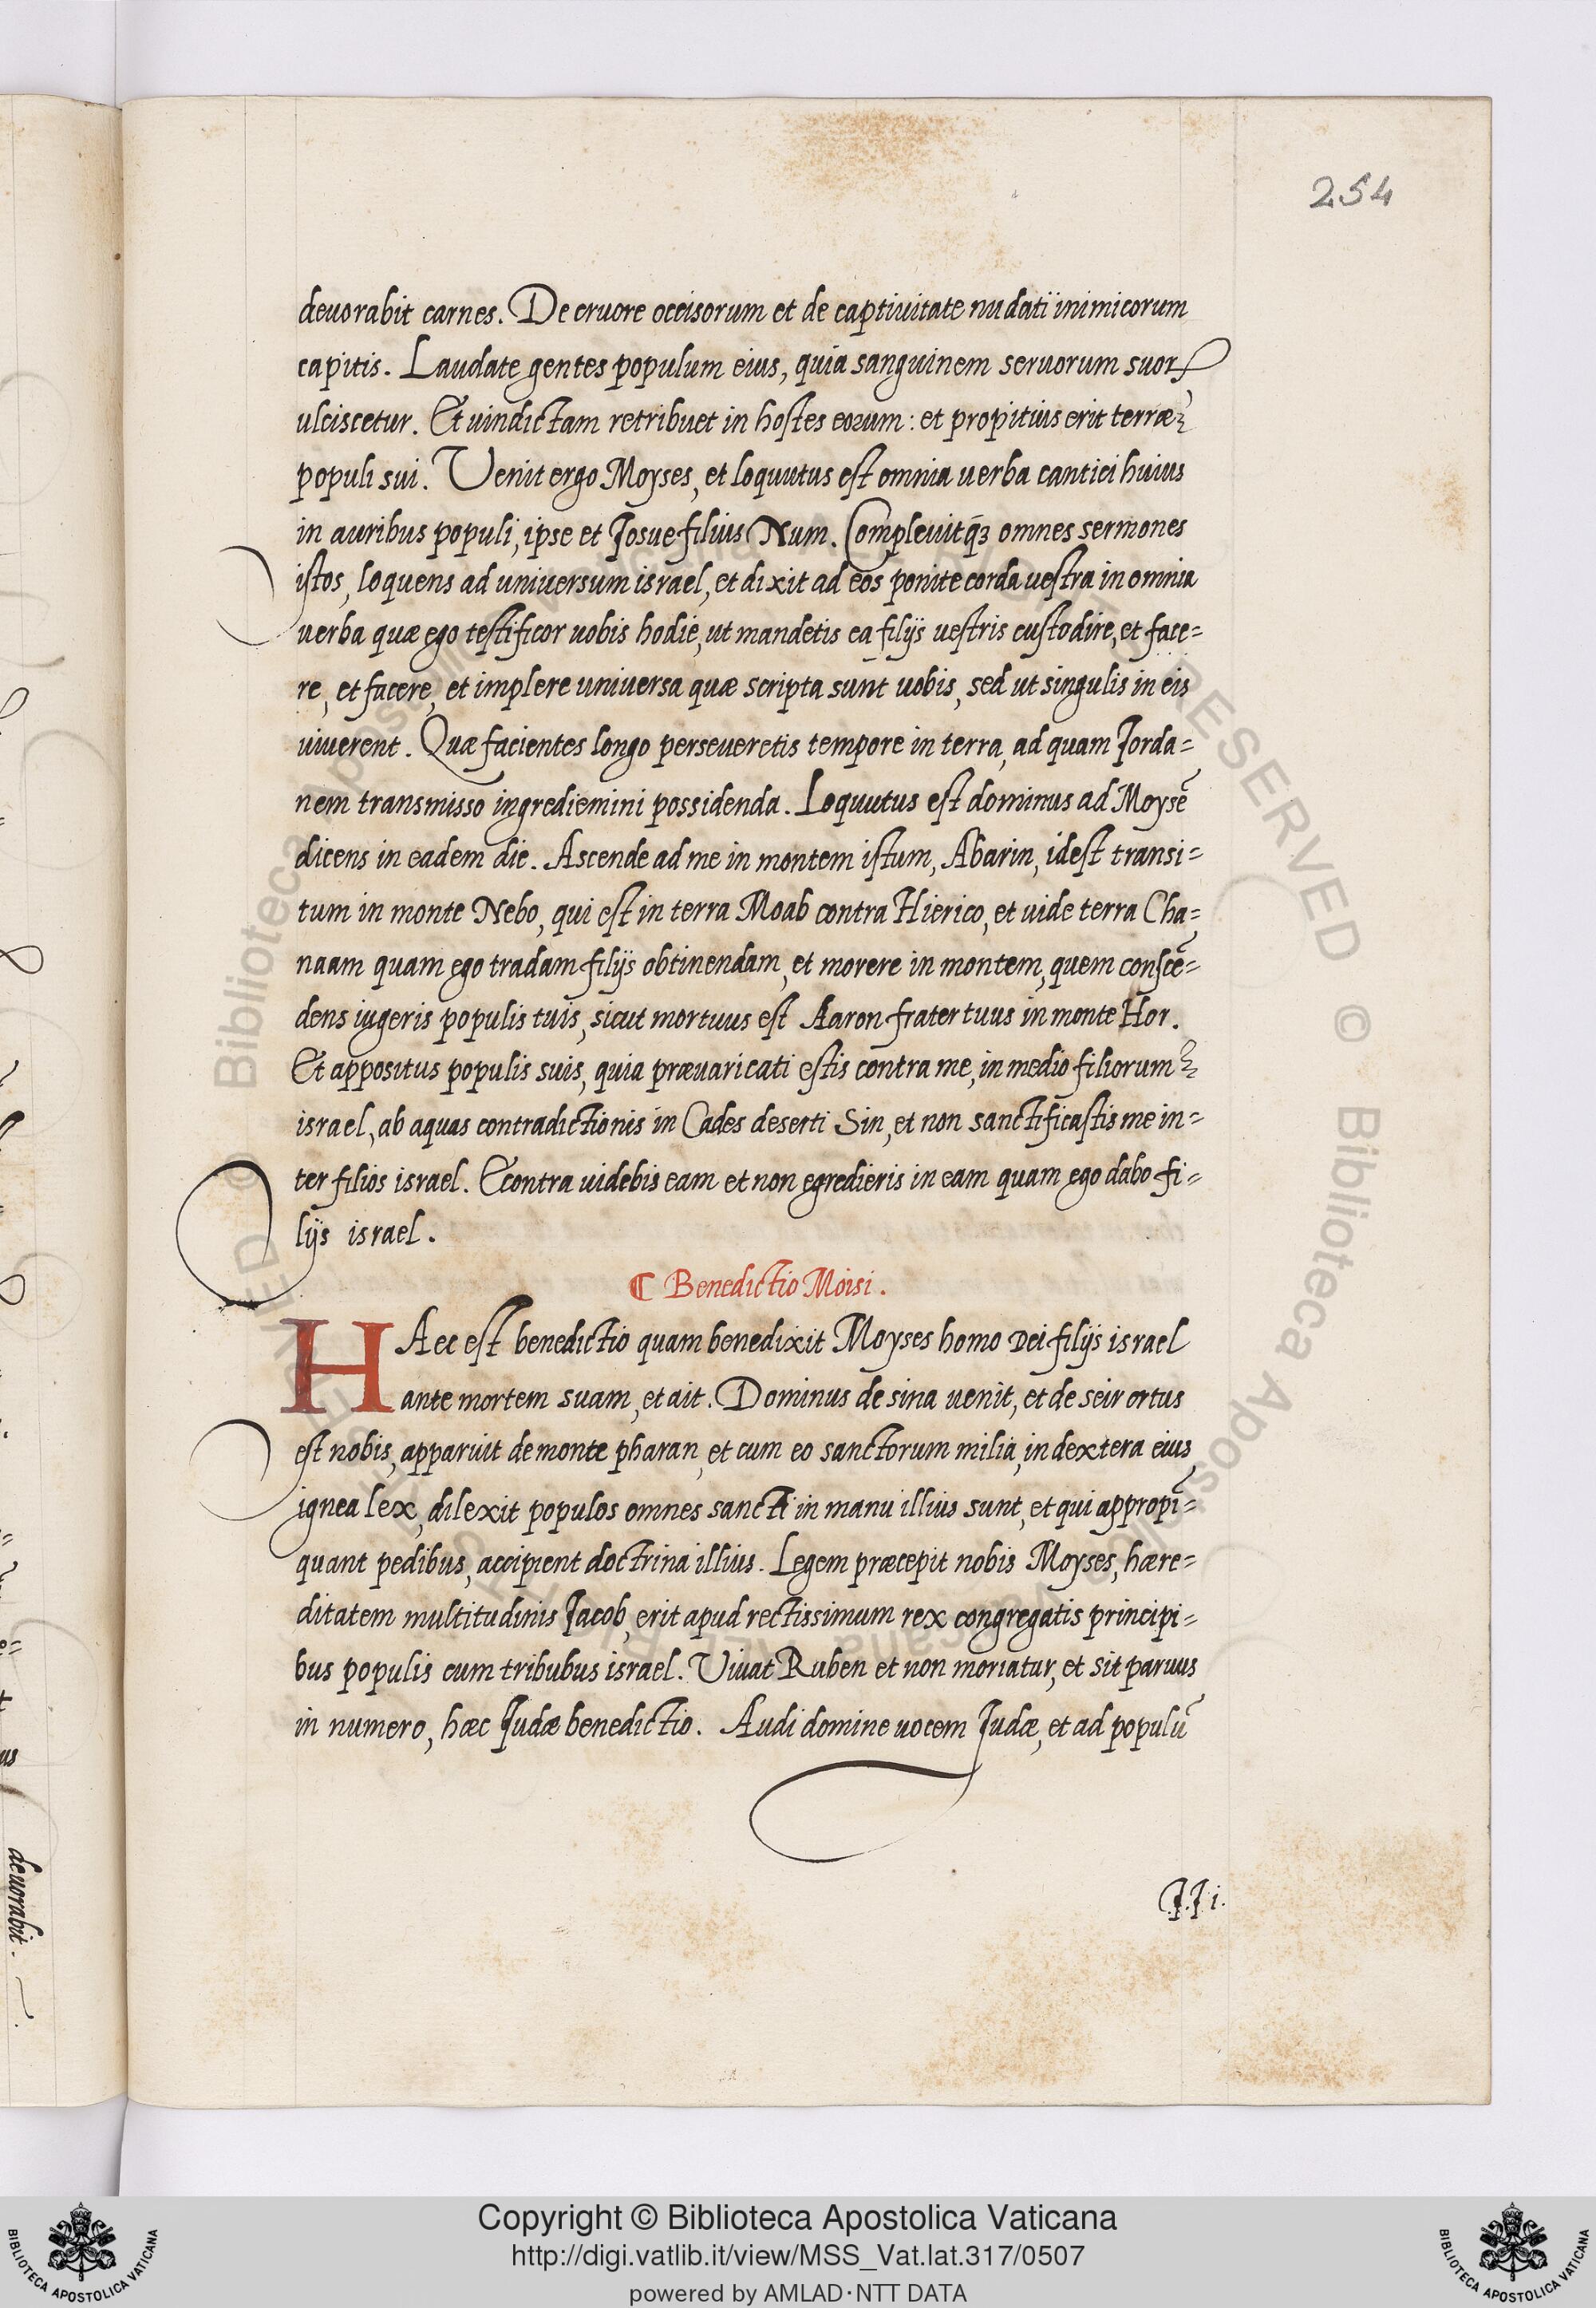 254
deuorabit carnes. De cruore occisorum et de captiuitate nudati inimicorum
capitis. Laudate gentes populum eius, quia sanguinem seruorum suorꝝ
ulciscetur. Et uindictam retribuet in hostes eorum: et propitius erit terræ
populi sui. Venit ergo Moyses, et loquutus est omnia uerba cantici huius
in auribus populi, ipse et Josue filius Num. Compleuitq̃ꝫ omnes sermones
istos, loquens ad uniuersum israel, et dixit ad eos ponite corda uestra in omnia
uerba quæ ego testificor uobis hodie, ut mandetis ea filijs uestris custodire, et face=
re, et facere, et implere uniuersa quæ scripta sunt uobis, sed ut singulis in eis
uiuerent. Quæ facientes longo perseueretis tempore in terra, ad quam Jorda=
nem transmisso ingrediemini possidenda. Loquutus est dominus ad Moysẽ
dicens in eadem die. Ascende ad me in montem istum, Abarin, idest transi=
tum in monte Nebo, qui est in terra Moab contra Hierico, et uide terra Cha=
naam quam ego tradam filijs obtinendam, et morere in montem, quem conscẽ=
dens iugeris populis tuis, sicut mortuus est Aaron frater tuus in monte Hor.
Et appositus populis suis, quia præuaricati estis contra me, in medio filiorum
israel, ab aquas contradictionis in Cades deserti Sin, et non sanctificastis me in=
ter filios israel. Econtra uidebis eam et non egredieris in eam quam ego dabo fi=
lijs israel.
¶ Benedictio Moisi.
HAec est benedictio quam benedixit Moyses homo Dei filijs israel
ante mortem suam, et ait. Dominus de sina uenit, et de seir ortus
est nobis, apparuit de monte pharan, et cum eo sanctorum milia, in dextera eius
ignea lex, dilexit populos omnes sancti in manu illius sunt, et qui appropĩ=
quant pedibus, accipient doctrina illius. Legem præcepit nobis Moyses, hære=
ditatem multitudinis Jacob, erit apud rectissimum rex congregatis principi=
bus populis cum tribubus israel. Viuat Ruben et non moriatur, et sit paruus
in numero, hæc Judæ benedictio. Audi domine uocem Judæ, et ad populũ
JJ i.
deuorabit.
© Biblioteca Apostolica Vaticana ALL RIGHTS RESERVED © Biblioteca Apostolica Vaticana ALL RIGHTS RESERVED
Copyright © Biblioteca Apostolica Vaticana
http://digi.vatlib.it/view/MSS_Vat.lat.317/0507
powered by AMLAD·NTT DATA
BIBLIOTECA APOSTOLICA VATICANA
BIBLIOTECA APOSTOLICA VATICANA